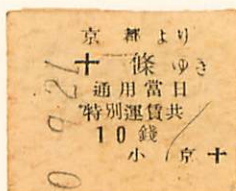 京都より
十條ゆき
通用當日
特別運賃共
10錢
小 京十
0 9.21